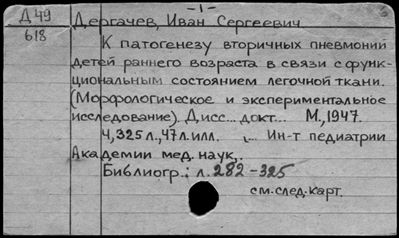 Д 49
618
-1-
Дергачев, Иван Сергеевич
К патогенезу вторичных пневмоний
детей раннего возраста в связи с функ-
циональным состоянием легочной ткани.
(Морфологическое и экспериментальное
исследование). Дисс... докт... М., 1947.
4, 325 л., 47 л. илл. ... Ин-т педиатрии
Академии мед. наук,.
Библиогр.: л. 282-325
см. след. карт.